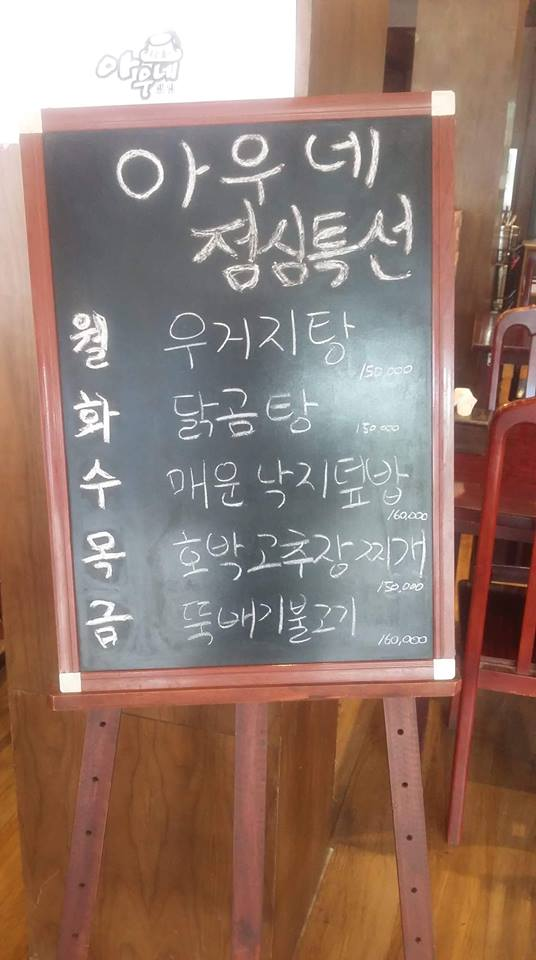 아우네
아우네
점심특선
월 우거지탕 150,000
화 닭곰탕 150,000
수 매운 낙지덮밥 160,000
목 호박고추장찌개 150,000
금 뚝배기불고기 160,000